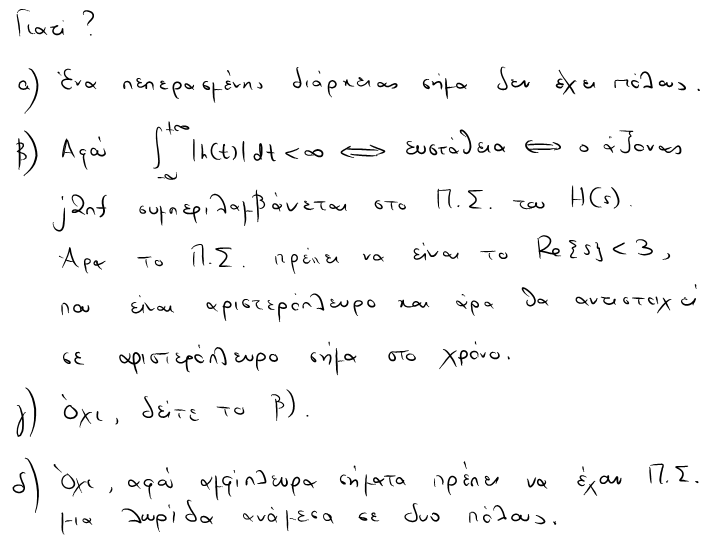 Γιατί ?
α) Ένα πεπερασμένης διάρκειας σήμα δεν έχει πόλους.
β) Αφού ∫_{-∞}^{+∞} |h(t)| dt < ∞ ⟺ ευστάθεια ⟺ ο άξονας
j2πf συμπεριλαμβάνεται στο Π.Σ. του H(s).
Άρα το Π.Σ. πρέπει να είναι το Re{s} < 3,
που είναι αριστερόπλευρο και άρα θα αντιστοιχεί
σε αριστερόπλευρο σήμα στο χρόνο.
γ) Όχι, δείτε το β).
δ) Όχι, αφού αμφίπλευρα σήματα πρέπει να έχουν Π.Σ.
μια λωρίδα ανάμεσα σε δυο πόλους.